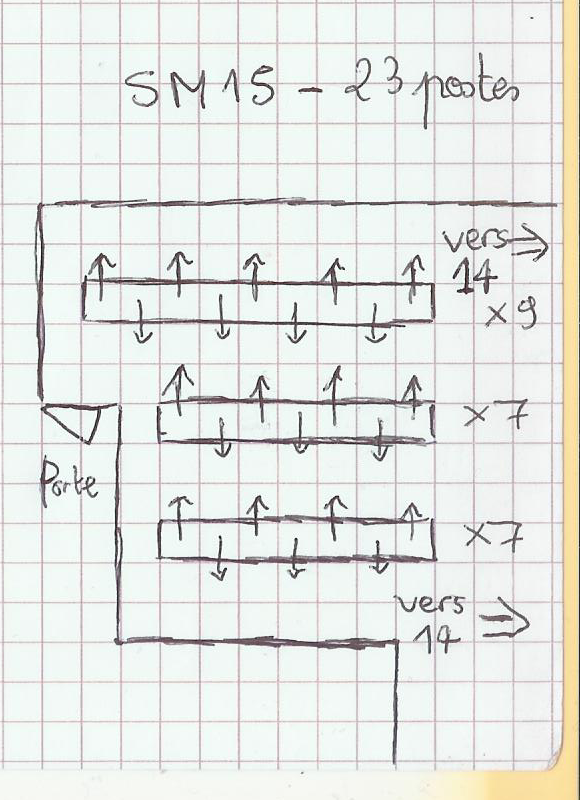 SM15 - 23 postes
vers
14
x9
x7
Porte
x7
vers
14